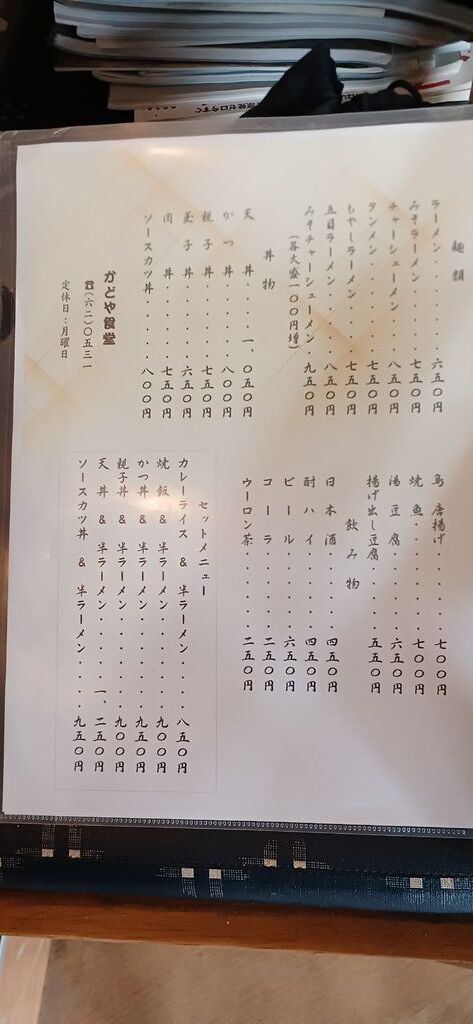 麺類
ラーメン・・・・・・六五〇円
みそラーメン・・・・七五〇円
チャーシューメン・・・八五〇円
タンメン・・・・・・七五〇円
もやしラーメン・・・七五〇円
五目ラーメン・・・・八五〇円
みそチャーシューメン・九五〇円
(各大盛一〇〇円増)
丼物
天丼・・・・一、〇五〇円
かつ丼・・・・・八〇〇円
親子丼・・・・・七五〇円
玉子丼・・・・・六五〇円
肉丼・・・・・七五〇円
ソースカツ丼・・・・八〇〇円
かどや食堂
☎(六二)〇五三一
定休日:月曜日
鳥唐揚げ・・・・・七〇〇円
焼魚・・・・・・七〇〇円
湯豆腐・・・・・六五〇円
揚げ出し豆腐・・・・五五〇円
飲み物
日本酒・・・・・四五〇円
酎ハイ・・・・・四五〇円
ビール・・・・・六五〇円
コーラ・・・・・二五〇円
ウーロン茶・・・・・二五〇円
セットメニュー
カレーライス & 半ラーメン・・・・八五〇円
焼飯 & 半ラーメン・・・・・・九〇〇円
かつ丼 & 半ラーメン・・・・・九五〇円
親子丼 & 半ラーメン・・・・・九〇〇円
天丼 & 半ラーメン・・・・一、二五〇円
ソースカツ丼 & 半ラーメン・・・・九五〇円